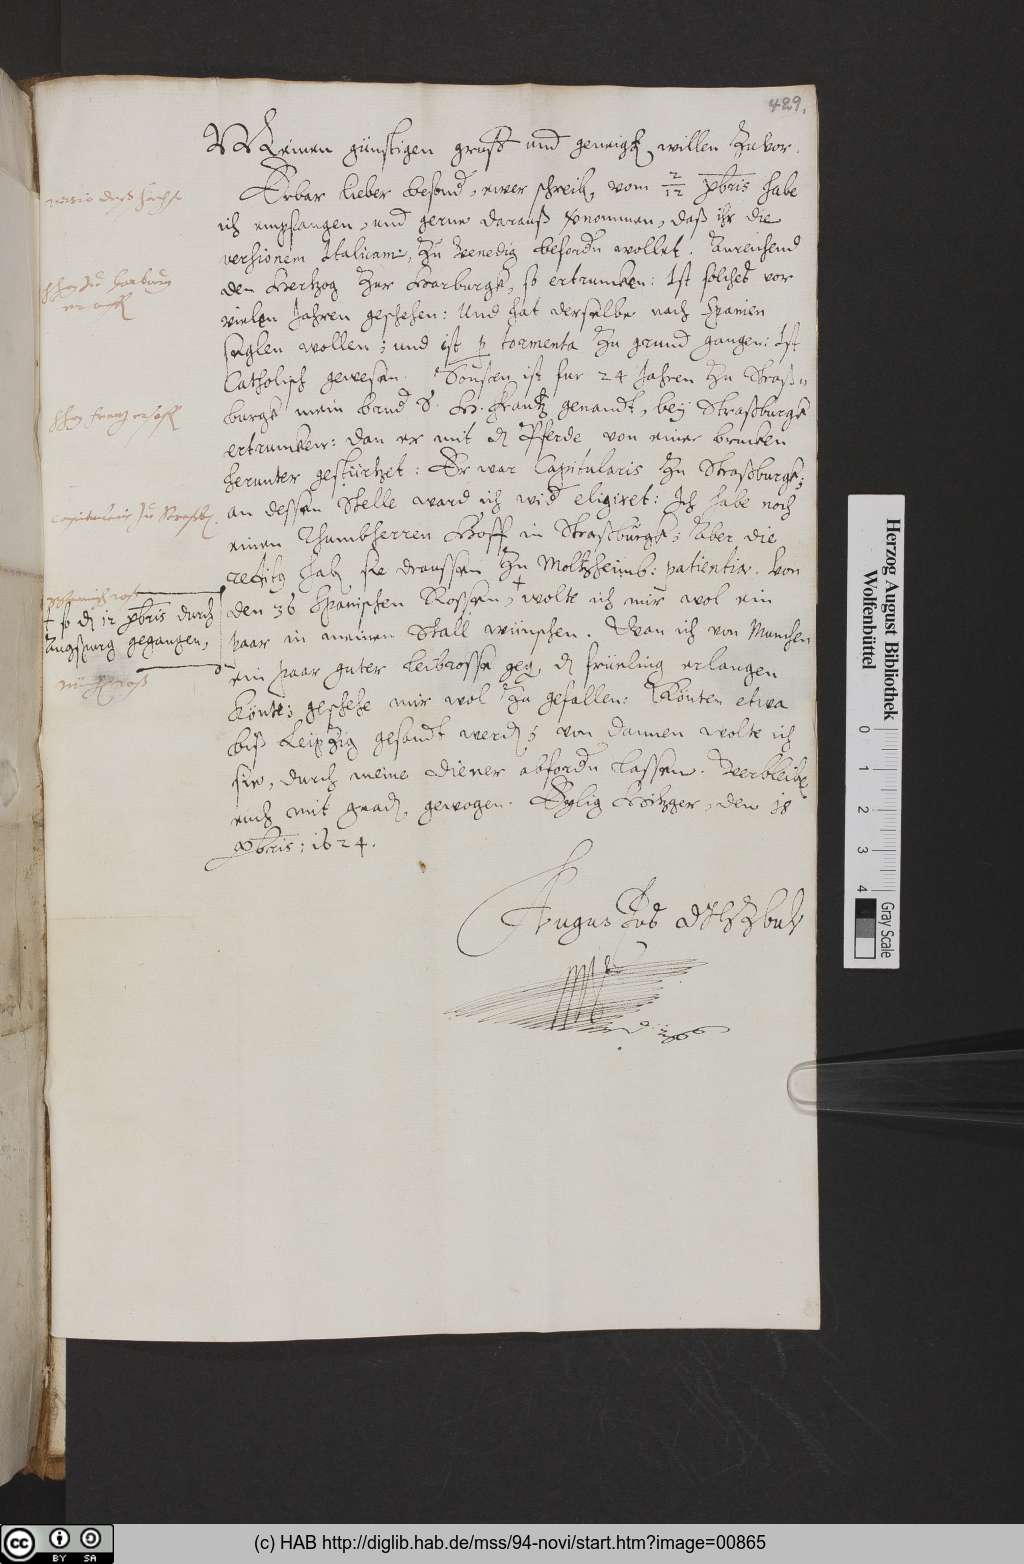 429.
Meinen günstigen gruß und geneigt. willen Zuvor.
Erbar lieber besond., ewer schreib. vom 2/12 Xbris habe
ich empfangen, und gerne darauß vernommen, daß ihr die
versionem Italicam, Zu Venedig befordn wollet. Anreichend
den Hertzog Zur Harburgk, so ertruncken: Ist solches vor
vielen Jahren geschehen: Und hat derselbe nach Hpanien
seglen wollen; und ist p tormenta Zu grund gangen: Ist
Catholisch gewesen. Sonsten ist fur 24 Jahren Zu Straß-
burgk mein brud. H. Frantz genandt, bey Straßburgk
ertruncken: dan er mit d. Pferde von einer brucken
herunter gestürtzet: Er war Capitularis Zu Straßburgk;
an dessen Stelle ward ich wid. eligiret: Ich habe noch
einen Thumbherren Hoff in Straßburgk; Aber die
reditg hab. sie draussen Zu Moltzheimb: patientia. Von
den 36 Hpanischen Rossen, † wolte ich mir wol ein
paar in meinen Stall wünschen. Wan ich von Munchen
ein paar guter Leibrosse geg. d. früeling erlangen
könte; geschehe mir wol Zu gefallen: Könten etwa
biß Leipzig gesandt werd.; von dannen wolte ich
sie, durch meine diener abfordn lassen. Verbleibe
euch mit gnad. gewogen. Eylig Hitzger, den 18
Xbris: 1624.
Augustus
versio deß sächs
capitularis Zu Straßb.
† so d. 12 Xbris durch
Augspurg gegangen,
Herzog August Bibliothek
Wolfenbüttel
0 1 2 3 4
Gray Scale
cc BY SA
(c) HAB http://diglib.hab.de/mss/94-novi/start.htm?image=00865